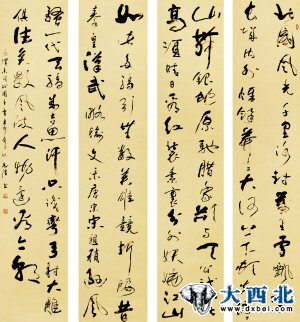 北国风光千里冰封万里雪飘望
长城内外惟余莽莽大河上下顿
山舞银蛇原驰蜡象欲与天公试比
高须晴日看红装素裹分外妖娆江山
如此多娇引无数英雄竞折腰惜
秦皇汉武略输文采唐宗宋祖稍逊风
骚一代天骄成吉思汗只识弯弓射大雕
俱往矣数风流人物还看今朝
大西北
www.dxbei.com